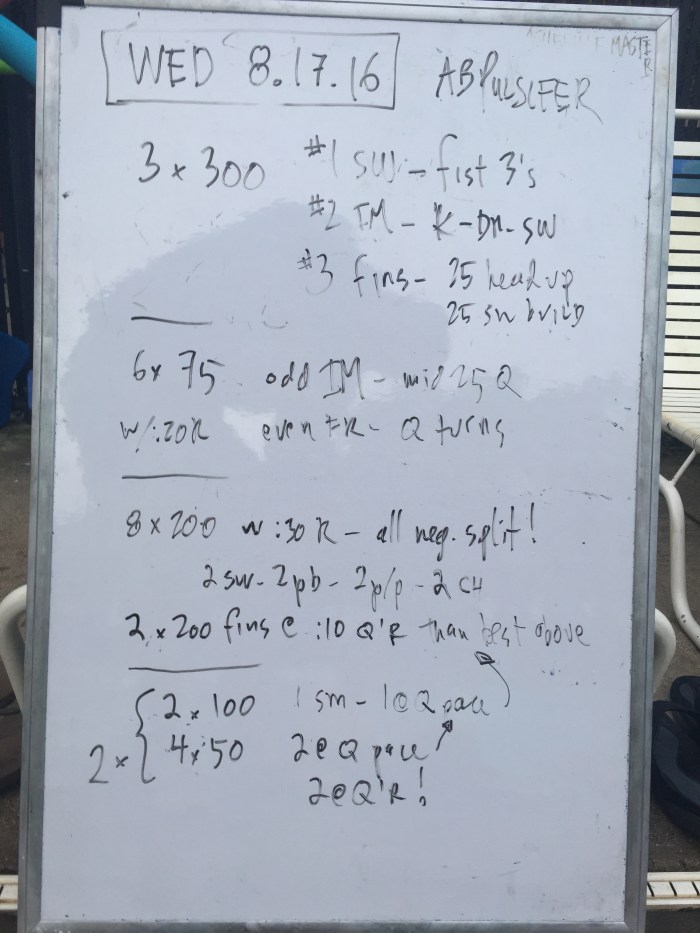 MASTER
WED 8.17.16 ABPULSIFER
3 x 300 #1 SW - fist 3's
#2 IM - K-DR-SW
#3 fins - 25 head up
25 sw build
6x 75 odd IM - mid 25 Q
w/:20R even FR - Q turns
8 x 200 w :30 R - all neg. split!
2 sw - 2 pb - 2 p/p - 2 CH
2 x 200 fins @ :10 Q'R than best above
2 x { 2 x 100 1 sm - 1@Q pace
4x 50 2@Q pace
2@Q'R!